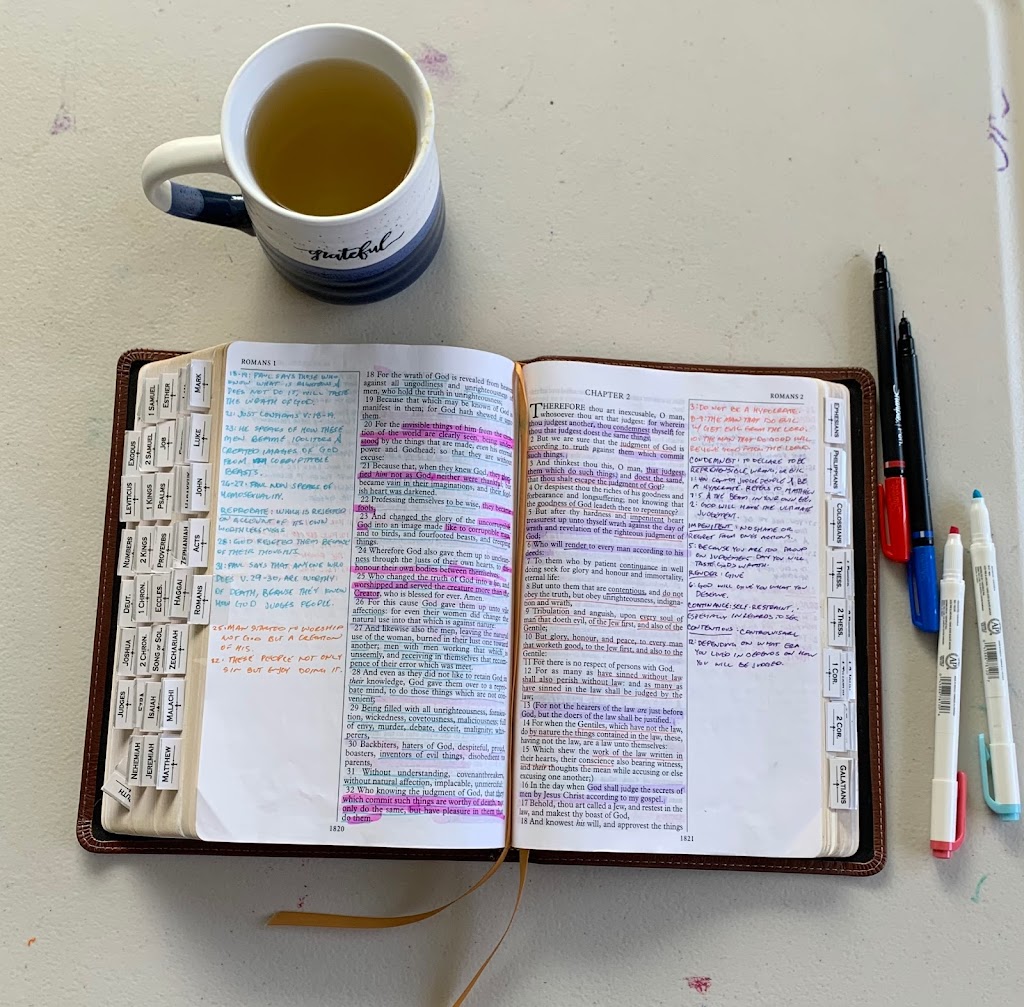 grateful
ROMANS 1
18 For the wrath of God is revealed from heaven
against all ungodliness and unrighteousness of
men, who hold the truth in unrighteousness;
19 Because that which may be known of God is
manifest in them; for God hath shewed it
20 For the invisible things of him from the
tion of the world are clearly seen, being
stood by the things that are made, even his
power and Godhead; so that they are without
excuse:
21 Because that, when they knew God, they
fied him not as God, neither were thankful;
became vain in their imaginations, and their
ish heart was darkened.
22 Professing themselves to be wise, they became
fools,
23 And changed the glory of the uncorruptible
God into an image made like to corruptible man,
and to birds, and fourfooted beasts, and creeping
things.
24 Wherefore God also gave them up to
ness through the lusts of their own hearts, to
honour their own bodies between themselves:
25 Who changed the truth of God into a lie, and
worshipped and served the creature more than the
Creator, who is blessed for ever. Amen.
26 For this cause God gave them up unto vile
affections: for even their women did change the
natural use into that which is against nature:
27 And likewise also the men, leaving the natural
use of the woman, burned in their lust one toward
another; men with men working that which is
unseemly, and receiving in themselves that recom-
pence of their error which was meet.
28 And even as they did not like to retain God in
their knowledge, God gave them over to a repro-
bate mind, to do those things which are not con-
venient;
29 Being filled with all unrighteousness, fornica-
tion, wickedness, covetousness, maliciousness; full
of envy, murder, debate, deceit, malignity; whis-
perers,
30 Backbiters, haters of God, despiteful, proud,
boasters, inventors of evil things, disobedient to
parents,
31 Without understanding, covenantbreakers,
without natural affection, implacable, unmerciful:
32 Who knowing the judgment of God, that they
which commit such things are worthy of death, not
only do the same, but have pleasure in them that
do them.
1820
18-19: PAUL SAYS THOSE WHO
KNOW WHAT IS RIGHTEOUS &
DOES NOT DO IT, WILL TASTE
THE WRATH OF GOD.
21: JUST CONFIRMS V.18-19.
23: HE SPEAKS OF HOW THESE
MEN BECAME IDOLITERS &
CREATED IMAGES OF GOD
FROM CORRUPTIBLE
BEASTS.
26-27: PAUL NOW SPEAKS OF
HOMOSEXUALITY.
REPROBATE: WHICH IS REJECTED
ON ACCOUNT OF ITS OWN
WORTHLESSNESS
28: GOD REJECTED THEM BECAUSE
OF THEIR THOUGHTS.
31: PAUL SAYS THAT ANYONE WHO
DOES V. 29-30, ARE WORTHY
OF DEATH, BECAUSE THEY KNOW
HOW GOD JUDGES PEOPLE.
25: MAN STARTED TO WORSHIP
NOT GOD BUT A CREATION
OF HIS.
32: THESE PEOPLE NOT ONLY
SIN BUT ENJOY DOING IT.
CHAPTER 2
ROMANS 2
THEREFORE thou art inexcusable, O man,
whosoever thou art that judgest: for wherein
thou judgest another, thou condemnest thyself; for
thou that judgest doest the same things.
2 But we are sure that the judgment of God is
according to truth against them which commit
such things.
3 And thinkest thou this, O man, that judgest
them which do such things, and doest the same,
that thou shalt escape the judgment of God?
4 Or despisest thou the riches of his goodness and
forbearance and longsuffering; not knowing that
the goodness of God leadeth thee to repentance?
5 But after thy hardness and impenitent heart
treasurest up unto thyself wrath against the day of
wrath and revelation of the righteous judgment of
God;
6 Who will render to every man according to his
deeds:
7 To them who by patient continuance in well
doing seek for glory and honour and immortality,
eternal life:
8 But unto them that are contentious, and do not
obey the truth, but obey unrighteousness, indigna-
tion and wrath,
9 Tribulation and anguish, upon every soul of
man that doeth evil, of the Jew first, and also of the
Gentile;
10 But glory, honour, and peace, to every man
that worketh good, to the Jew first, and also to the
Gentile:
11 For there is no respect of persons with God.
12 For as many as have sinned without law
shall also perish without law: and as many as
have sinned in the law shall be judged by the
law;
13 (For not the hearers of the law are just before
God, but the doers of the law shall be justified.
14 For when the Gentiles, which have not the law,
do by nature the things contained in the law, these,
having not the law, are a law unto themselves:
15 Which shew the work of the law written in
their hearts, their conscience also bearing witness,
and their thoughts the mean while accusing or else
excusing one another;)
16 In the day when God shall judge the secrets of
men by Jesus Christ according to my gospel.
17 Behold, thou art called a Jew, and restest in the
law, and makest thy boast of God,
18 And knowest his will, and approvest the things
1821
3: DO NOT BE A HYPOCRATE.
CONDEMNEST: TO DECLARE TO BE
REPREHENSIBLE, WRONG, OR EVIL
1: YOU CAN'T JUDGE PEOPLE & BE
A HYPOCRATE. REFERS TO MATTHEW
7:5 & THE BEAM IN YOUR OWN EYE.
2: GOD MAKES THE ULTIMATE
JUDGEMENT.
IMPENITENT: NO SHAME OR
REGRET FROM ONE'S ACTIONS.
5: BECAUSE YOU ARE TOO PROUD
ON JUDGEMENT DAY YOU WILL
TASTE GOD'S WRATH.
RENDER: GIVE
6: GOD WILL GIVE YOU WHAT YOU
DESERVE.
CONTINUANCE: SELF-RESTRAINT,
ESPECIALLY IN REGARDS TO SEX
CONTENTIOUS: CONTROVERSIAL
12: DEPENDING ON WHAT ERA
YOU LIVED IN DEPENDS ON HOW
YOU WILL BE JUDGED.
1 SAMUEL
ESTHER
MARK
EXODUS
2 SAMUEL
JOB
LUKE
LEVITICUS
1 KINGS
PSALMS
JOHN
NUMBERS
2 KINGS
PROVERBS
ZEPHANIAH
ACTS
DEUT.
1 CHRON.
ECCLES.
HAGGAI
ROMANS
JOSHUA
2 CHRON.
SONG of SOL.
ZECHARIAH
JUDGES
EZRA
ISAIAH
MALACHI
NEHEMIAH
JEREMIAH
MATTHEW
RUTH
EPHESIANS
PHILIPPIANS
COLOSSIANS
1 THESS.
2 THESS.
1 COR.
2 COR.
GALATIANS